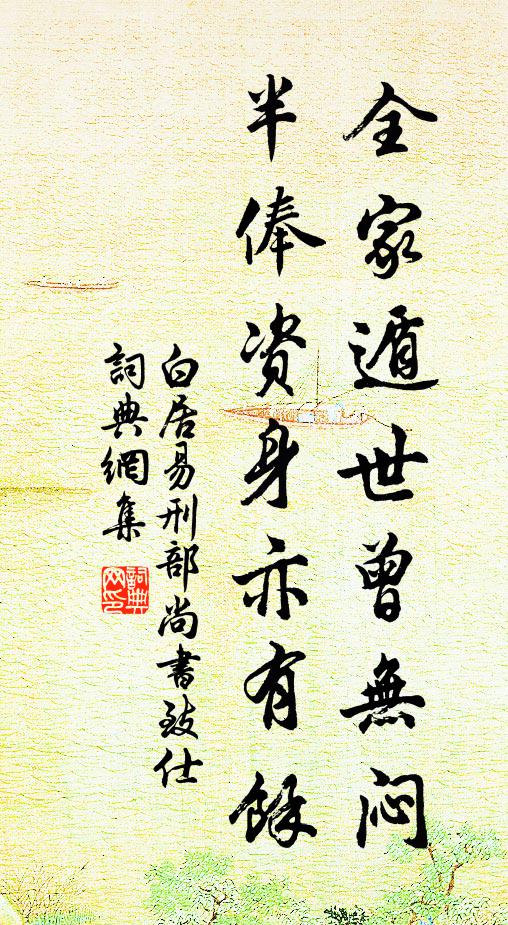 全家遁世曾無悶
半俸资身亦有餘
白居易刑部尚書致仕
詞典網集
詞典網印